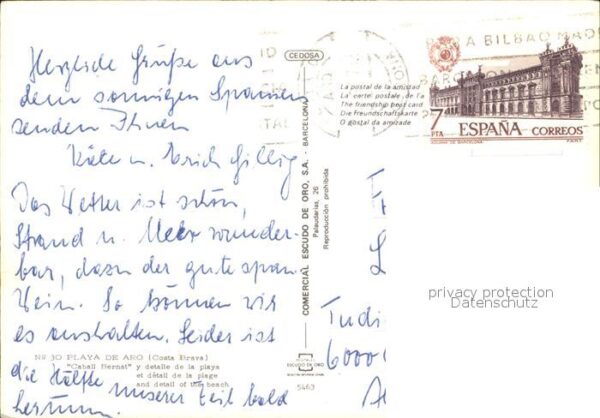 Herzliche Grüße aus
dem sonnigen Spanien
senden Ihnen
Käte u. Erich Gillig
Das Wetter ist schön,
Strand u. Meer wunder-
bar, dazu der gute span.
Wein. So können wir
es aushalten. Leider ist
die Hälfte unserer Zeit bald
herum.
Nº 30 PLAYA DE ARO (Costa Brava)
"Caball Bernat" y detalle de la playa
et détail de la plage
and detail of the beach
CEDOSA
COMERCIAL ESCUDO DE ORO, S.A. - BARCELONA
Palaudarias, 26
Reproducción prohibida
ESCUDO DE ORO
5463
La postal de la amistad
La cartei postale, de l'a
The friendship post card
Die Freundschaftskarte
O postal da amizade
A BILBAO MAD
7
PTA
ESPAÑA CORREOS
ADUANA DE BARCELONA
F.N.M.T.
6000
privacy protection
Datenschutz